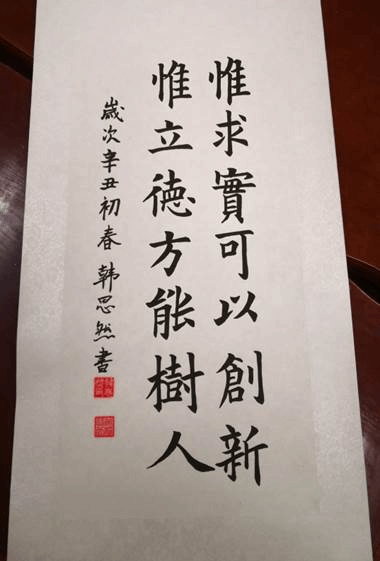 惟求實可以創新
惟立德方能樹人
歲次辛丑初春韩思然書